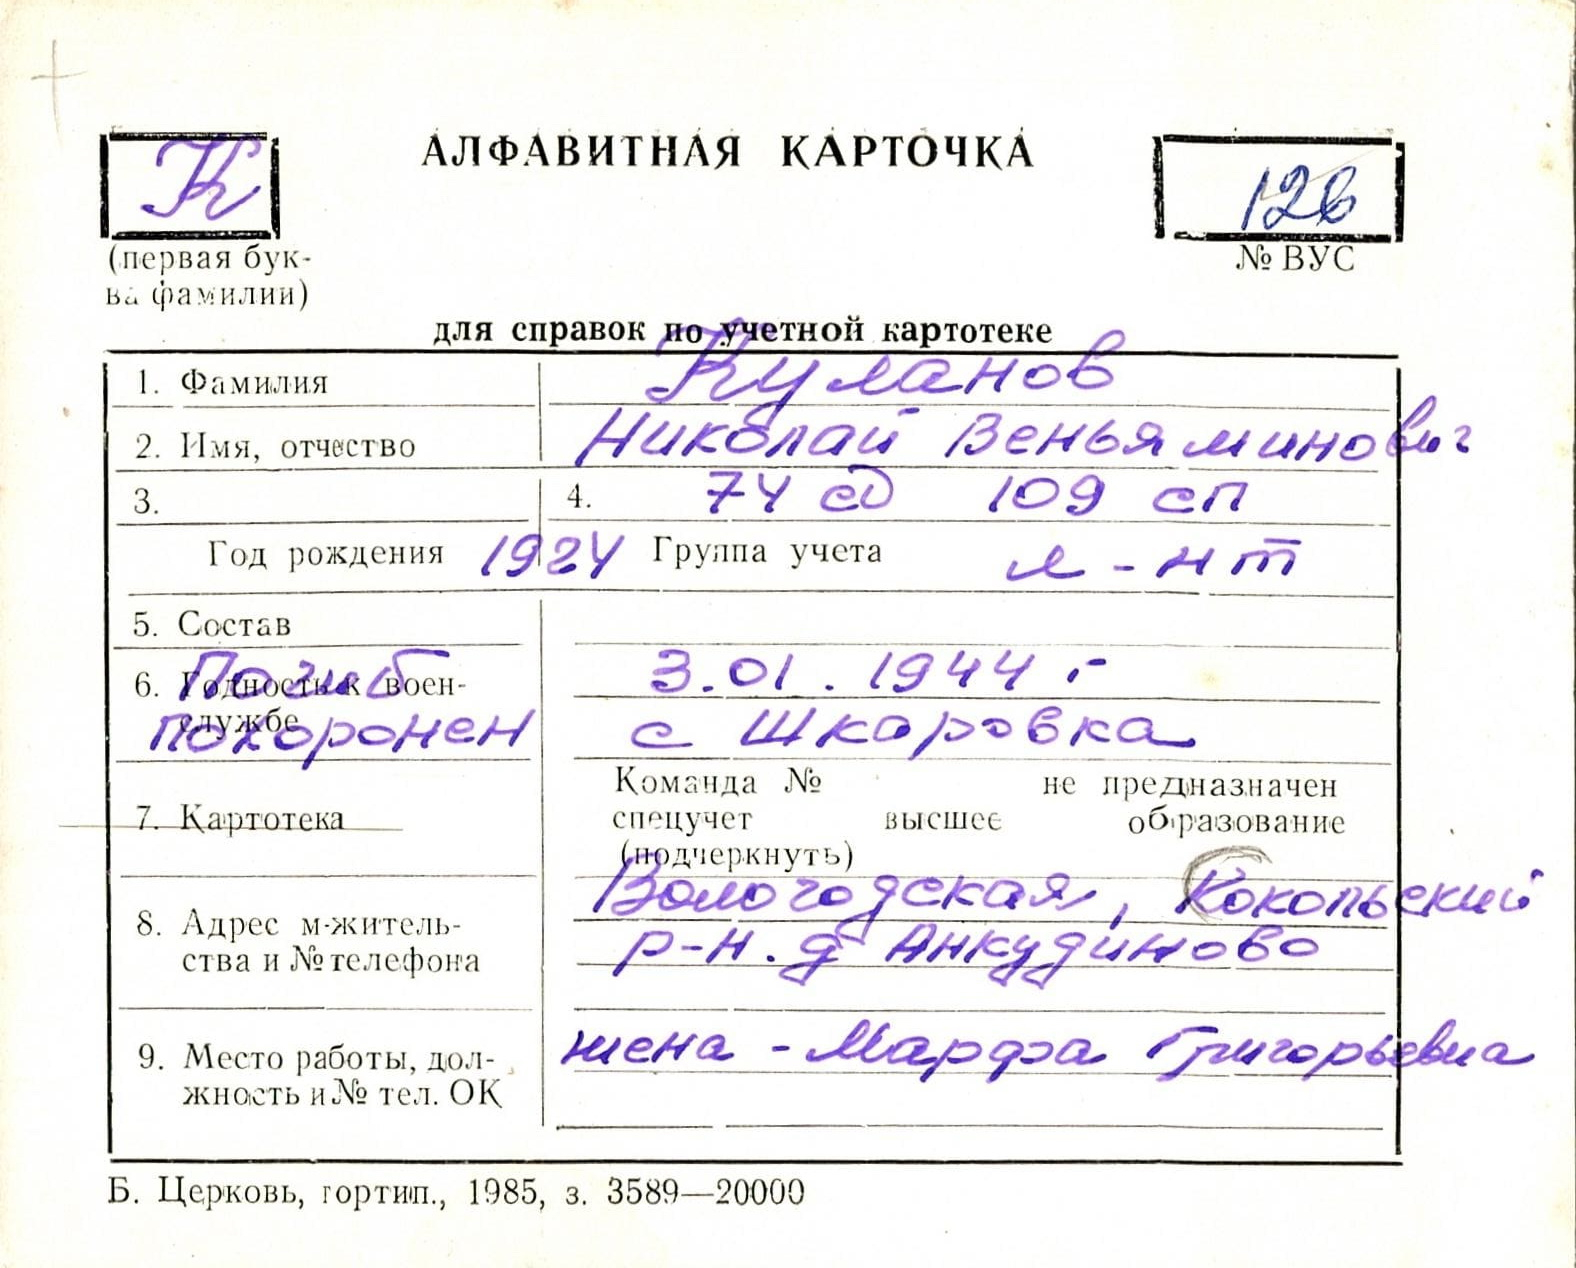 АЛФАВИТНАЯ КАРТОЧКА
К
126
(первая бук-
ва фамилии)
№ ВУС
для справок по учетной картотеке
1. Фамилия Куланов
2. Имя, отчество Николай Веньяминович
3. 4. 74 сд 109 сп
Год рождения 1924 Группа учета л-нт
5. Состав
6. Годность к воен-
службе
Погиб 3.01.1944 г
похоронен с Шкаровка
Команда № не предназначен
7. Картотека спецучет высшее образование
(подчеркнуть)
Вологодская, Кокопьский
8. Адрес м-житель-
ства и № телефона
р-н. д Анкудиново
9. Место работы, дол-
жность и № тел. ОК
жена - Марфа Григорьевна
Б. Церковь, гортип., 1985, з. 3589—20000